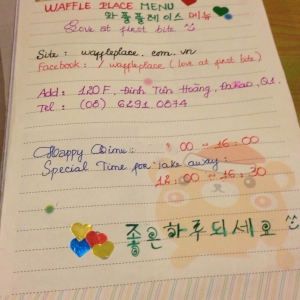 WAFFLE PLACE MENU
와플플레이스 메뉴
Love at first bite
Site : waffleplace.com.vn
Facebook : /waffleplace (love at first bite)
Add : 120F, Đinh Tiên Hoàng, Đakao, Q1.
Tel : (08) 6291 0874
Happy Time : 00 - 16 : 00
Special Time for take away :
12 : 00 - 16 : 30
좋은하루되세요